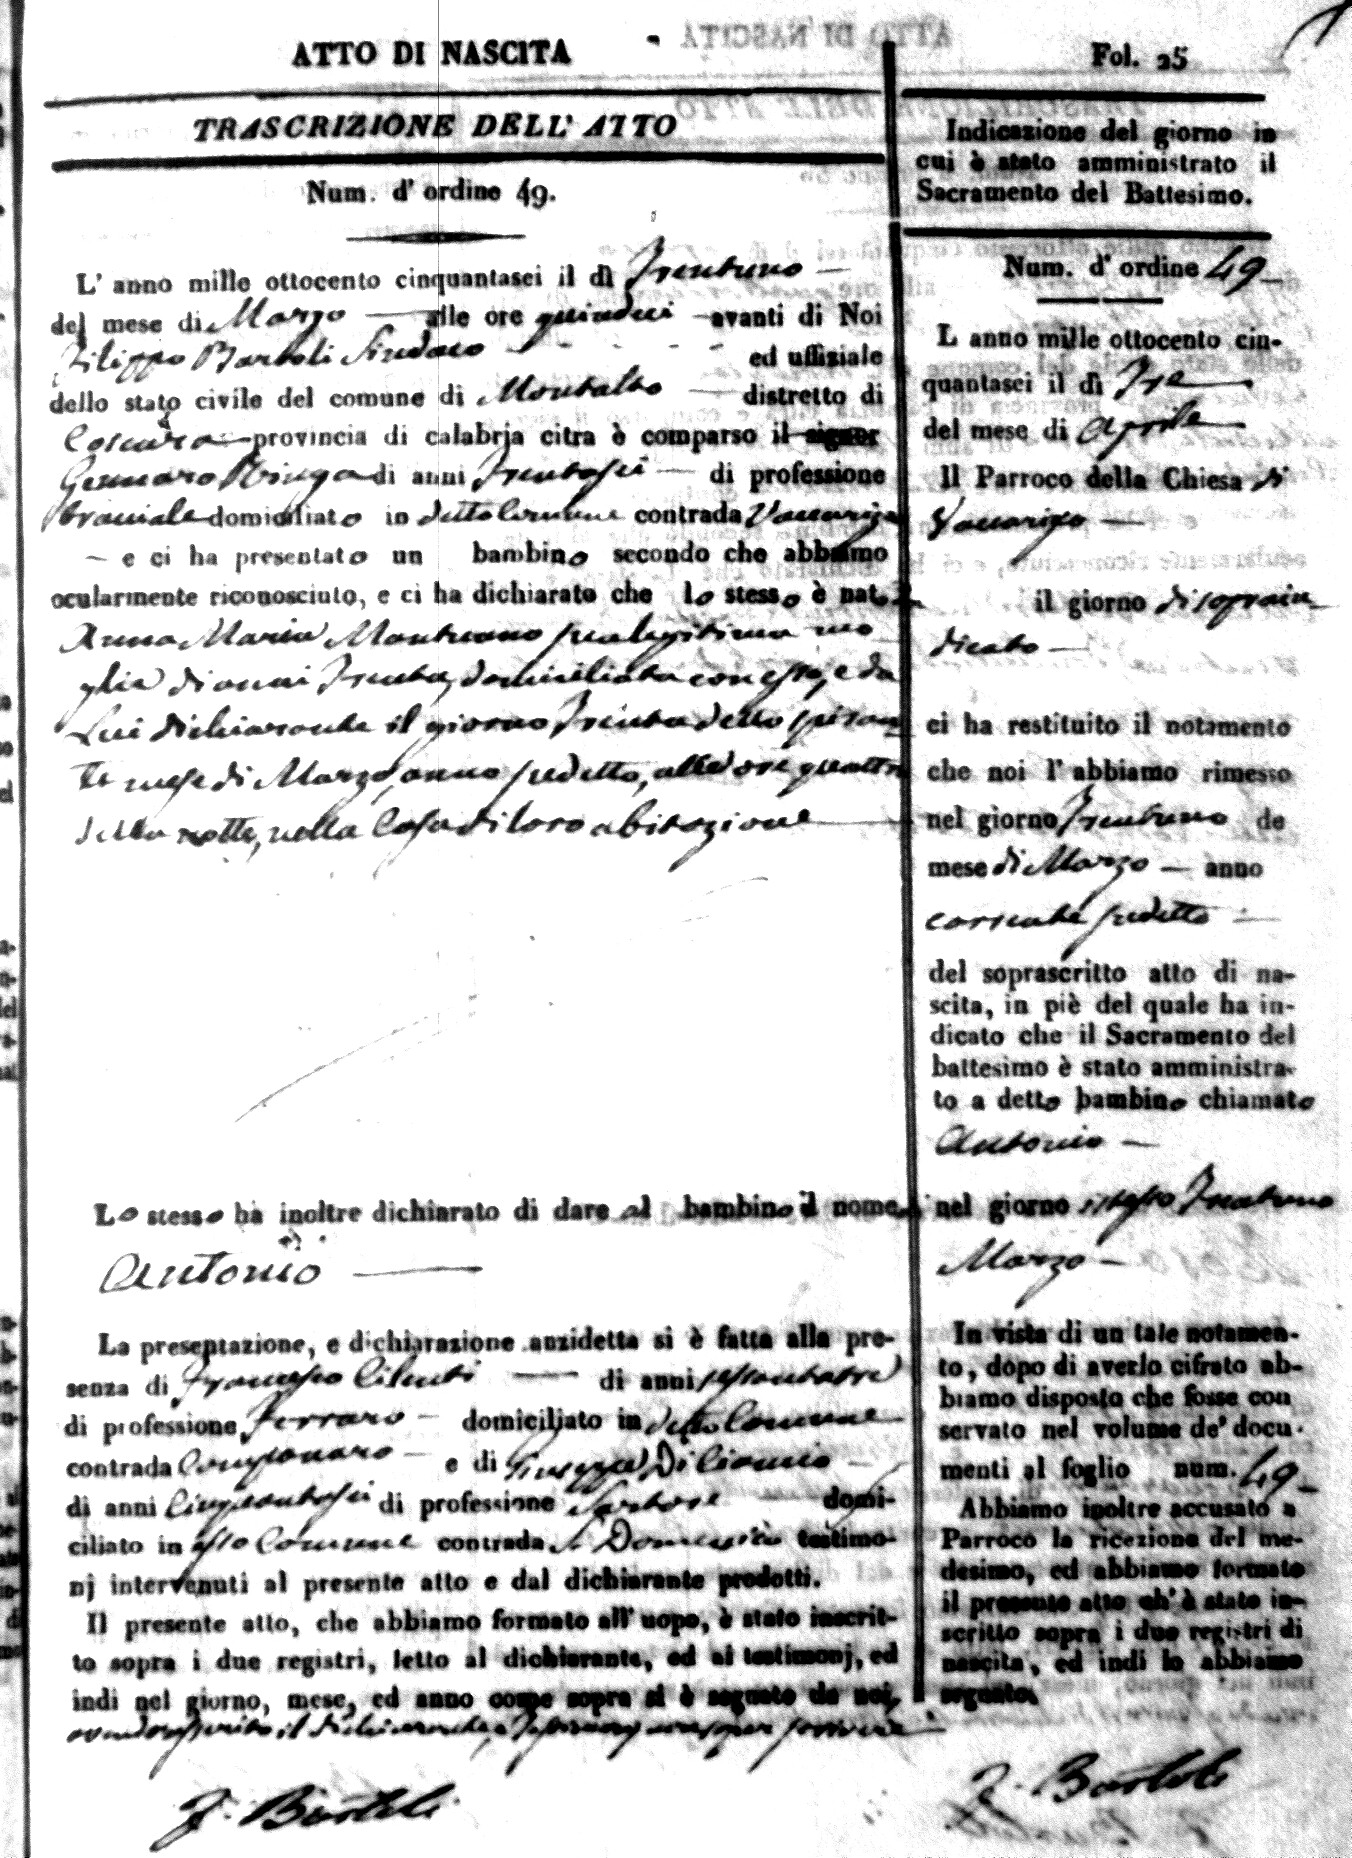 ATTO DI NASCITA
TRASCRIZIONE DELL' ATTO
Num. d' ordine 49.
L' anno mille ottocento cinquantasei il dì Trentuno
del mese di Marzo alle ore quindici avanti di Noi
Filippo Bartoli Sindaco ed uffiziale
dello stato civile del comune di Montalto distretto di
Cosenza provincia di calabria citra è comparso il signor
Gennaro di anni Trentasei di professione
Braciale domiciliato in detto Comune contrada Vaccarizzo
e ci ha presentato un bambino secondo che abbiamo
ocularmente riconosciuto, e ci ha dichiarato che lo stesso è nato da
Anna Maria sua legitima mo
glie di anni Trenta, domiciliata con esso, e da
Lui dichiarante il giorno Trenta detto spiran
te mese di Marzo, anno sudetto, alle ore quattro
della notte, nella Casa di loro abitazione
Lo stesso ha inoltre dichiarato di dare al bambino il nome di
Antonio
La presentazione, e dichiarazione anzidetta si è fatta alla pre-
senza di Francesco di anni sessantatre
di professione Ferraro domiciliato in detto Comune
contrada e di Giuseppe Di
di anni Cinquantasei di professione Sartore domi-
ciliato in esso Comune contrada S. Domenico testimo-
nj intervenuti al presente atto e dal dichiarante prodotti.
Il presente atto, che abbiamo formato all' uopo, è stato inscrit-
to sopra i due registri, letto al dichiarante, ed ai testimonj, ed
indi nel giorno, mese, ed anno come sopra si è segnato da noi,
avendo asserito il dichiarante, e Testimonj non saper scrivere
F. Bartoli
Fol. 25
Indicazione del giorno in
cui è stato amministrato il
Sacramento del Battesimo.
Num. d' ordine 49
L anno mille ottocento cin-
quantasei il dì Tre
del mese di Aprile
Il Parroco della Chiesa di
Vaccarizzo
il giorno di sopra in
dicato
ci ha restituito il notamento
che noi l' abbiamo rimesso
nel giorno Trentuno de
mese di Marzo anno
corrente sudetto
del soprascritto atto di na-
scita, in piè del quale ha in-
dicato che il Sacramento del
battesimo è stato amministra-
to a detto bambino chiamato
Antonio
nel giorno istesso Trentuno
Marzo
In vista di un tale notamen-
to, dopo di averlo cifrato ab-
biamo disposto che fosse con
servato nel volume de' docu-
menti al foglio num. 49
Abbiamo inoltre accusato a
Parroco la ricezione del me-
desimo, ed abbiamo formato
il presente atto ch' è stato in-
scritto sopra i due registri di
nascita, ed indi lo abbiamo
segnato.
F. Bartoli